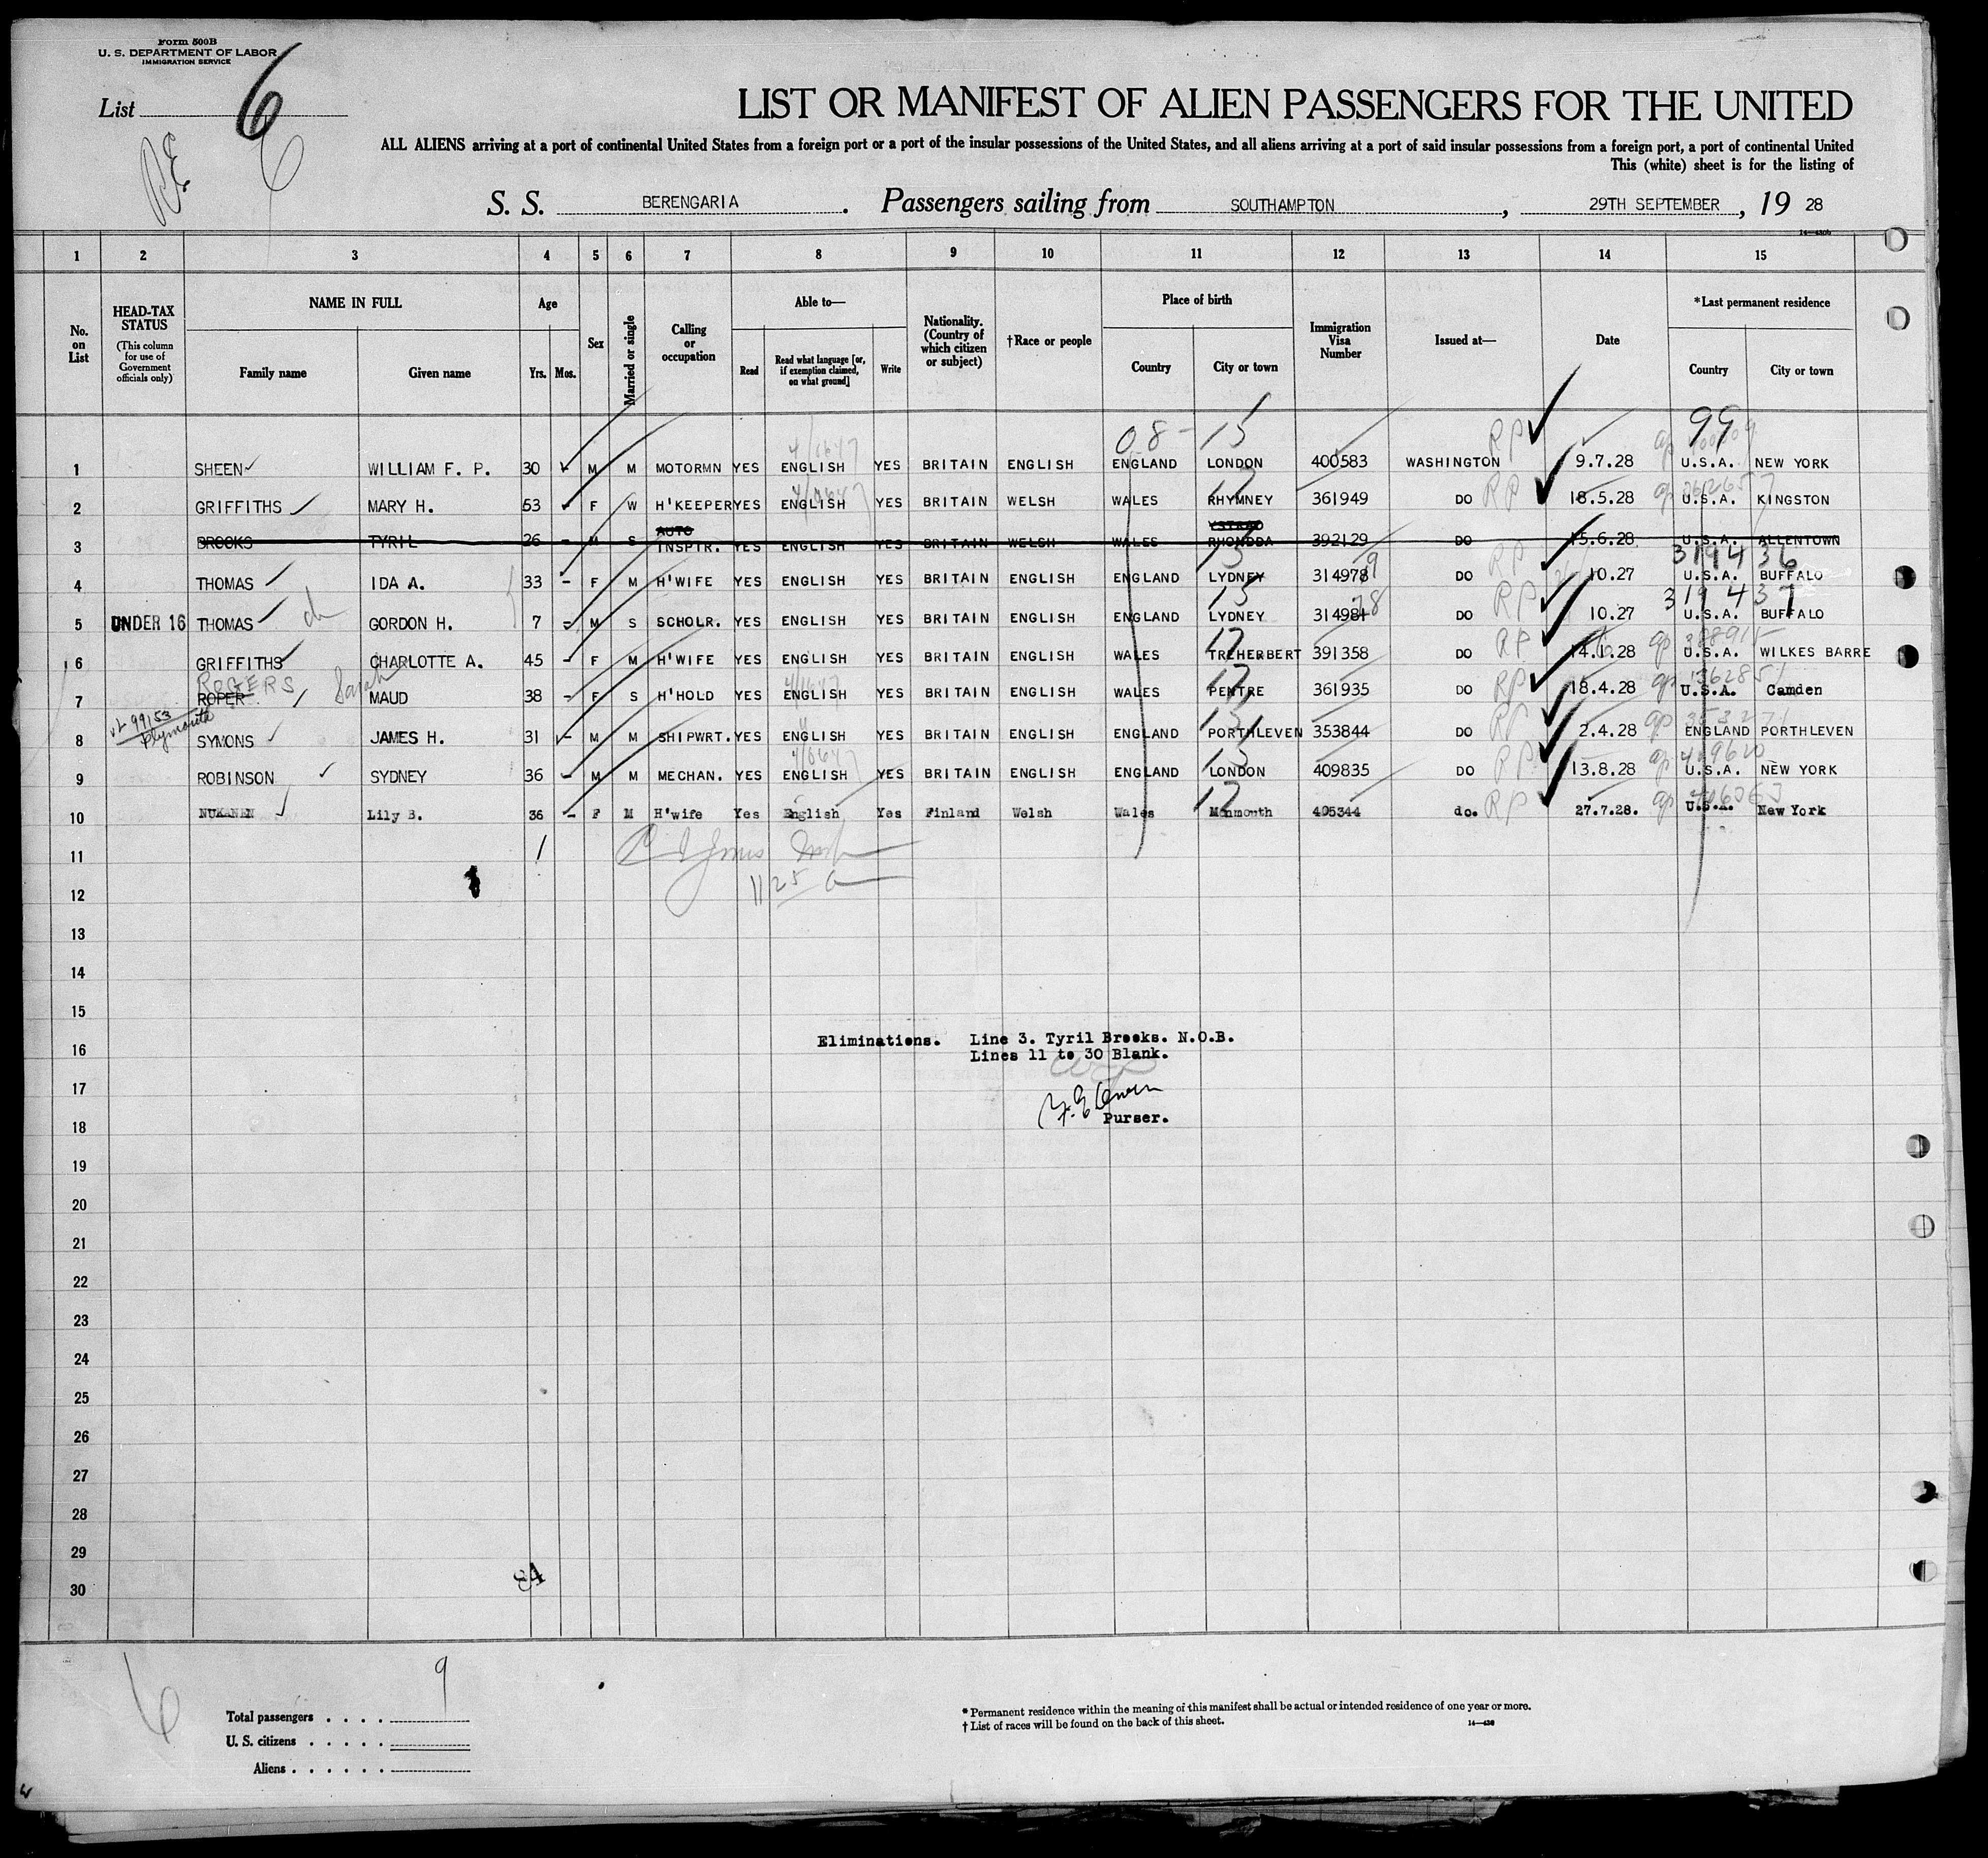 Form 500B
U. S. DEPARTMENT OF LABOR
IMMIGRATION SERVICE
List 6
6
LIST OR MANIFEST OF ALIEN PASSENGERS FOR THE UNITED
ALL ALIENS arriving at a port of continental United States from a foreign port or a port of the insular possessions of the United States, and all aliens arriving at a port of said insular possessions from a foreign port, a port of continental United
This (white) sheet is for the listing of
S. S. BERENGARIA. Passengers sailing from SOUTHAMPTON, 29TH SEPTEMBER, 19 28
1 2 3 4 5 6 7 8 9 10 11 12 13 14 15
No. on List
HEAD-TAX STATUS (This column for use of Government officials only)
NAME IN FULL Family name Given name
Age Yrs. Mos.
Sex
Married or single
Calling or occupation
Able to— Read Read what language [or, if exemption claimed, on what ground] Write
Nationality. (Country of which citizen or subject)
†Race or people
Place of birth Country City or town
Immigration Visa Number
Issued at—
Date
*Last permanent residence Country City or town
08- 15 RP 99
1 SHEEN WILLIAM F. P. 30 M M MOTORMN YES ENGLISH YES BRITAIN ENGLISH ENGLAND LONDON 400583 WASHINGTON 9.7.28 U.S.A. NEW YORK
2 GRIFFITHS MARY H. 53 F W H'KEEPER YES ENGLISH YES BRITAIN WELSH WALES RHYMNEY 361949 DO RP 18.5.28 U.S.A. KINGSTON
3 BROOKS TYRIL 26 - M S AUTO INSPTR. YES ENGLISH YES BRITAIN WELSH WALES YSTRAD RHONDDA 392129 DO 15.6.28 U.S.A. ALLENTOWN
319436
4 THOMAS IDA A. 33 - F M H'WIFE YES ENGLISH YES BRITAIN ENGLISH ENGLAND LYDNEY 314978 9 DO RP 10.27 U.S.A. BUFFALO
319437
5 UNDER 16 THOMAS GORDON H. 7 - M S SCHOLR. YES ENGLISH YES BRITAIN ENGLISH ENGLAND LYDNEY 314981 78 DO RP 10.27 U.S.A. BUFFALO
6 GRIFFITHS CHARLOTTE A. 45 - F M H'WIFE YES ENGLISH YES BRITAIN ENGLISH WALES TREHERBERT 391358 DO RP 14.1.28 U.S.A. WILKES BARRE
ROGERS Sarah
7 ROPER MAUD 38 - F S H'HOLD YES ENGLISH YES BRITAIN ENGLISH WALES PENTRE 361935 DO RP 18.4.28 U.S.A. Camden
8 SYMONS JAMES H. 31 - M M SHIPWRT. YES ENGLISH YES BRITAIN ENGLISH ENGLAND PORTHLEVEN 353844 DO RP 2.4.28 ENGLAND PORTHLEVEN
9 ROBINSON SYDNEY 36 - M M MECHAN. YES ENGLISH YES BRITAIN ENGLISH ENGLAND LONDON 409835 DO RP 13.8.28 U.S.A. NEW YORK
10 NUKANEN Lily B. 36 - F M H'wife Yes English Yes Finland Welsh Wales Monmouth 405344 do. RP 27.7.28. U.S.A. New York
11
12
13
14
15
Eliminations. Line 3. Tyril Brooks. N.O.B.
16
Lines 11 to 30 Blank.
17
Purser.
18
19
20
21
22
23
24
25
26
27
28
29
30
6
Total passengers . . . . 9
U. S. citizens . . . . .
Aliens . . . . . .
* Permanent residence within the meaning of this manifest shall be actual or intended residence of one year or more.
† List of races will be found on the back of this sheet.